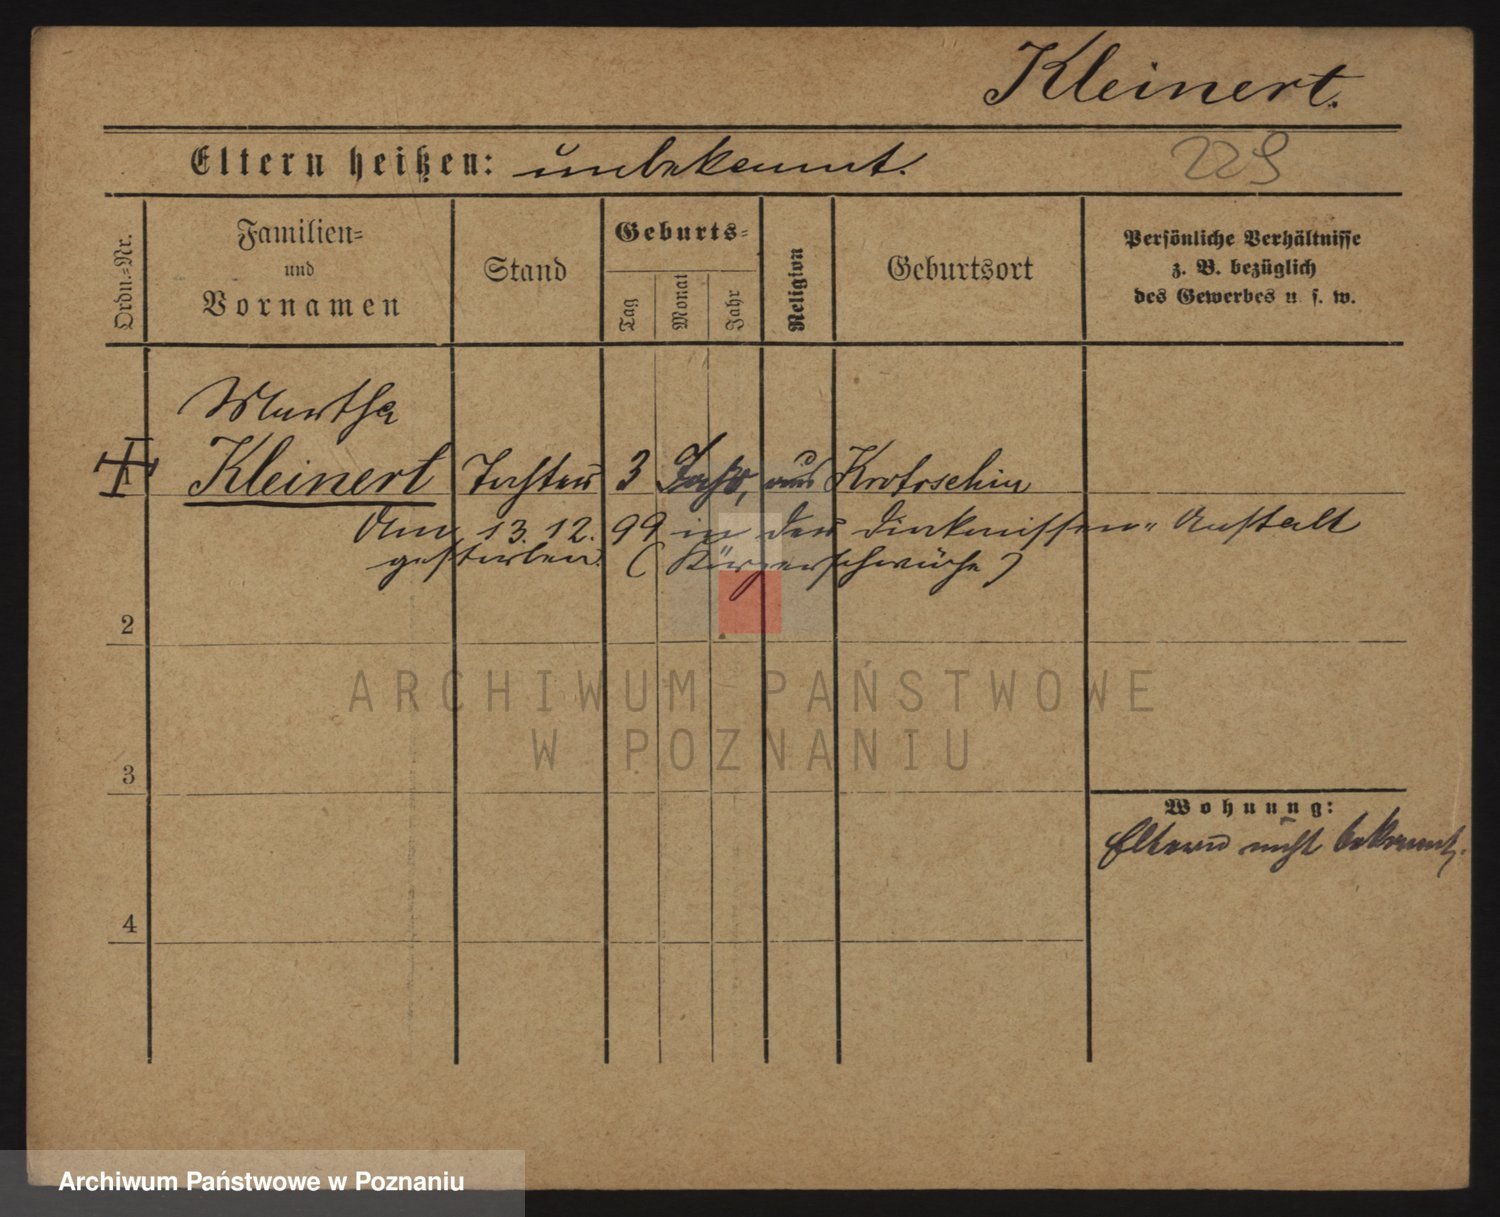 Kleinert.
Eltern heißen: unbekannt.
229
Ordn.-Nr.
Familien-
und
Vornamen
Stand
Geburts-
Tag
Monat
Jahr
Religion
Geburtsort
Persönliche Verhältnisse
z. B. bezüglich
des Gewerbes u. s. w.
Martha
Kleinert Tochter 3 Jahr, aus Krotoschin
Am 13. 12. 99 in der Diakonissen-Anstalt
gestorben. (Körperschwäche)
2
3
4
Wohnung:
Eltern nicht bekannt.
ARCHIWUM PAŃSTWOWE
W POZNANIU
Archiwum Państwowe w Poznaniu